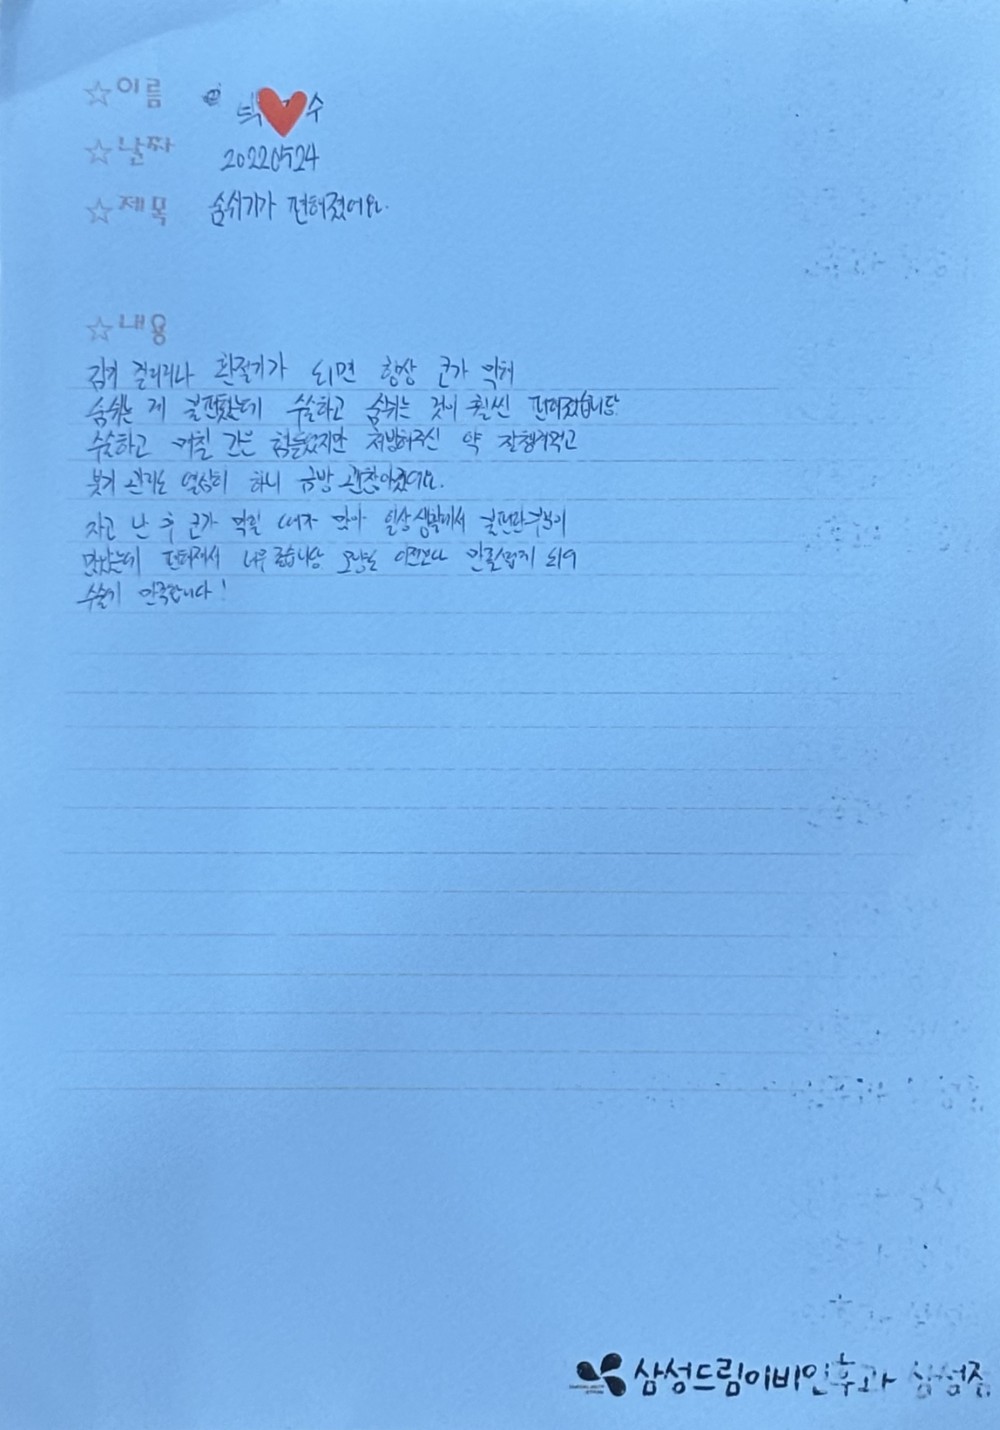 ☆이름 수
☆날짜 20220524
☆제목 숨쉬기가 편해졌어요.
☆내용
감기 걸리거나 환절기가 되면 항상 코가 막혀
숨쉬는 게 불편했는데 수술하고 숨쉬는 것이 훨씬 편해졌습니다
수술하고 며칠 간은 힘들었지만 처방해주신 약 잘챙겨먹고
붓기 관리도 열심히 하니 금방 괜찮아졌어요.
자고 난 후 코가 막힐 때가 많아 일상생활에서 불편한 부분이
많았는데 편해져서 너무 좋습니당 모양도 이전보다 되어
수술이 만족합니다!
삼성드림이비인후과